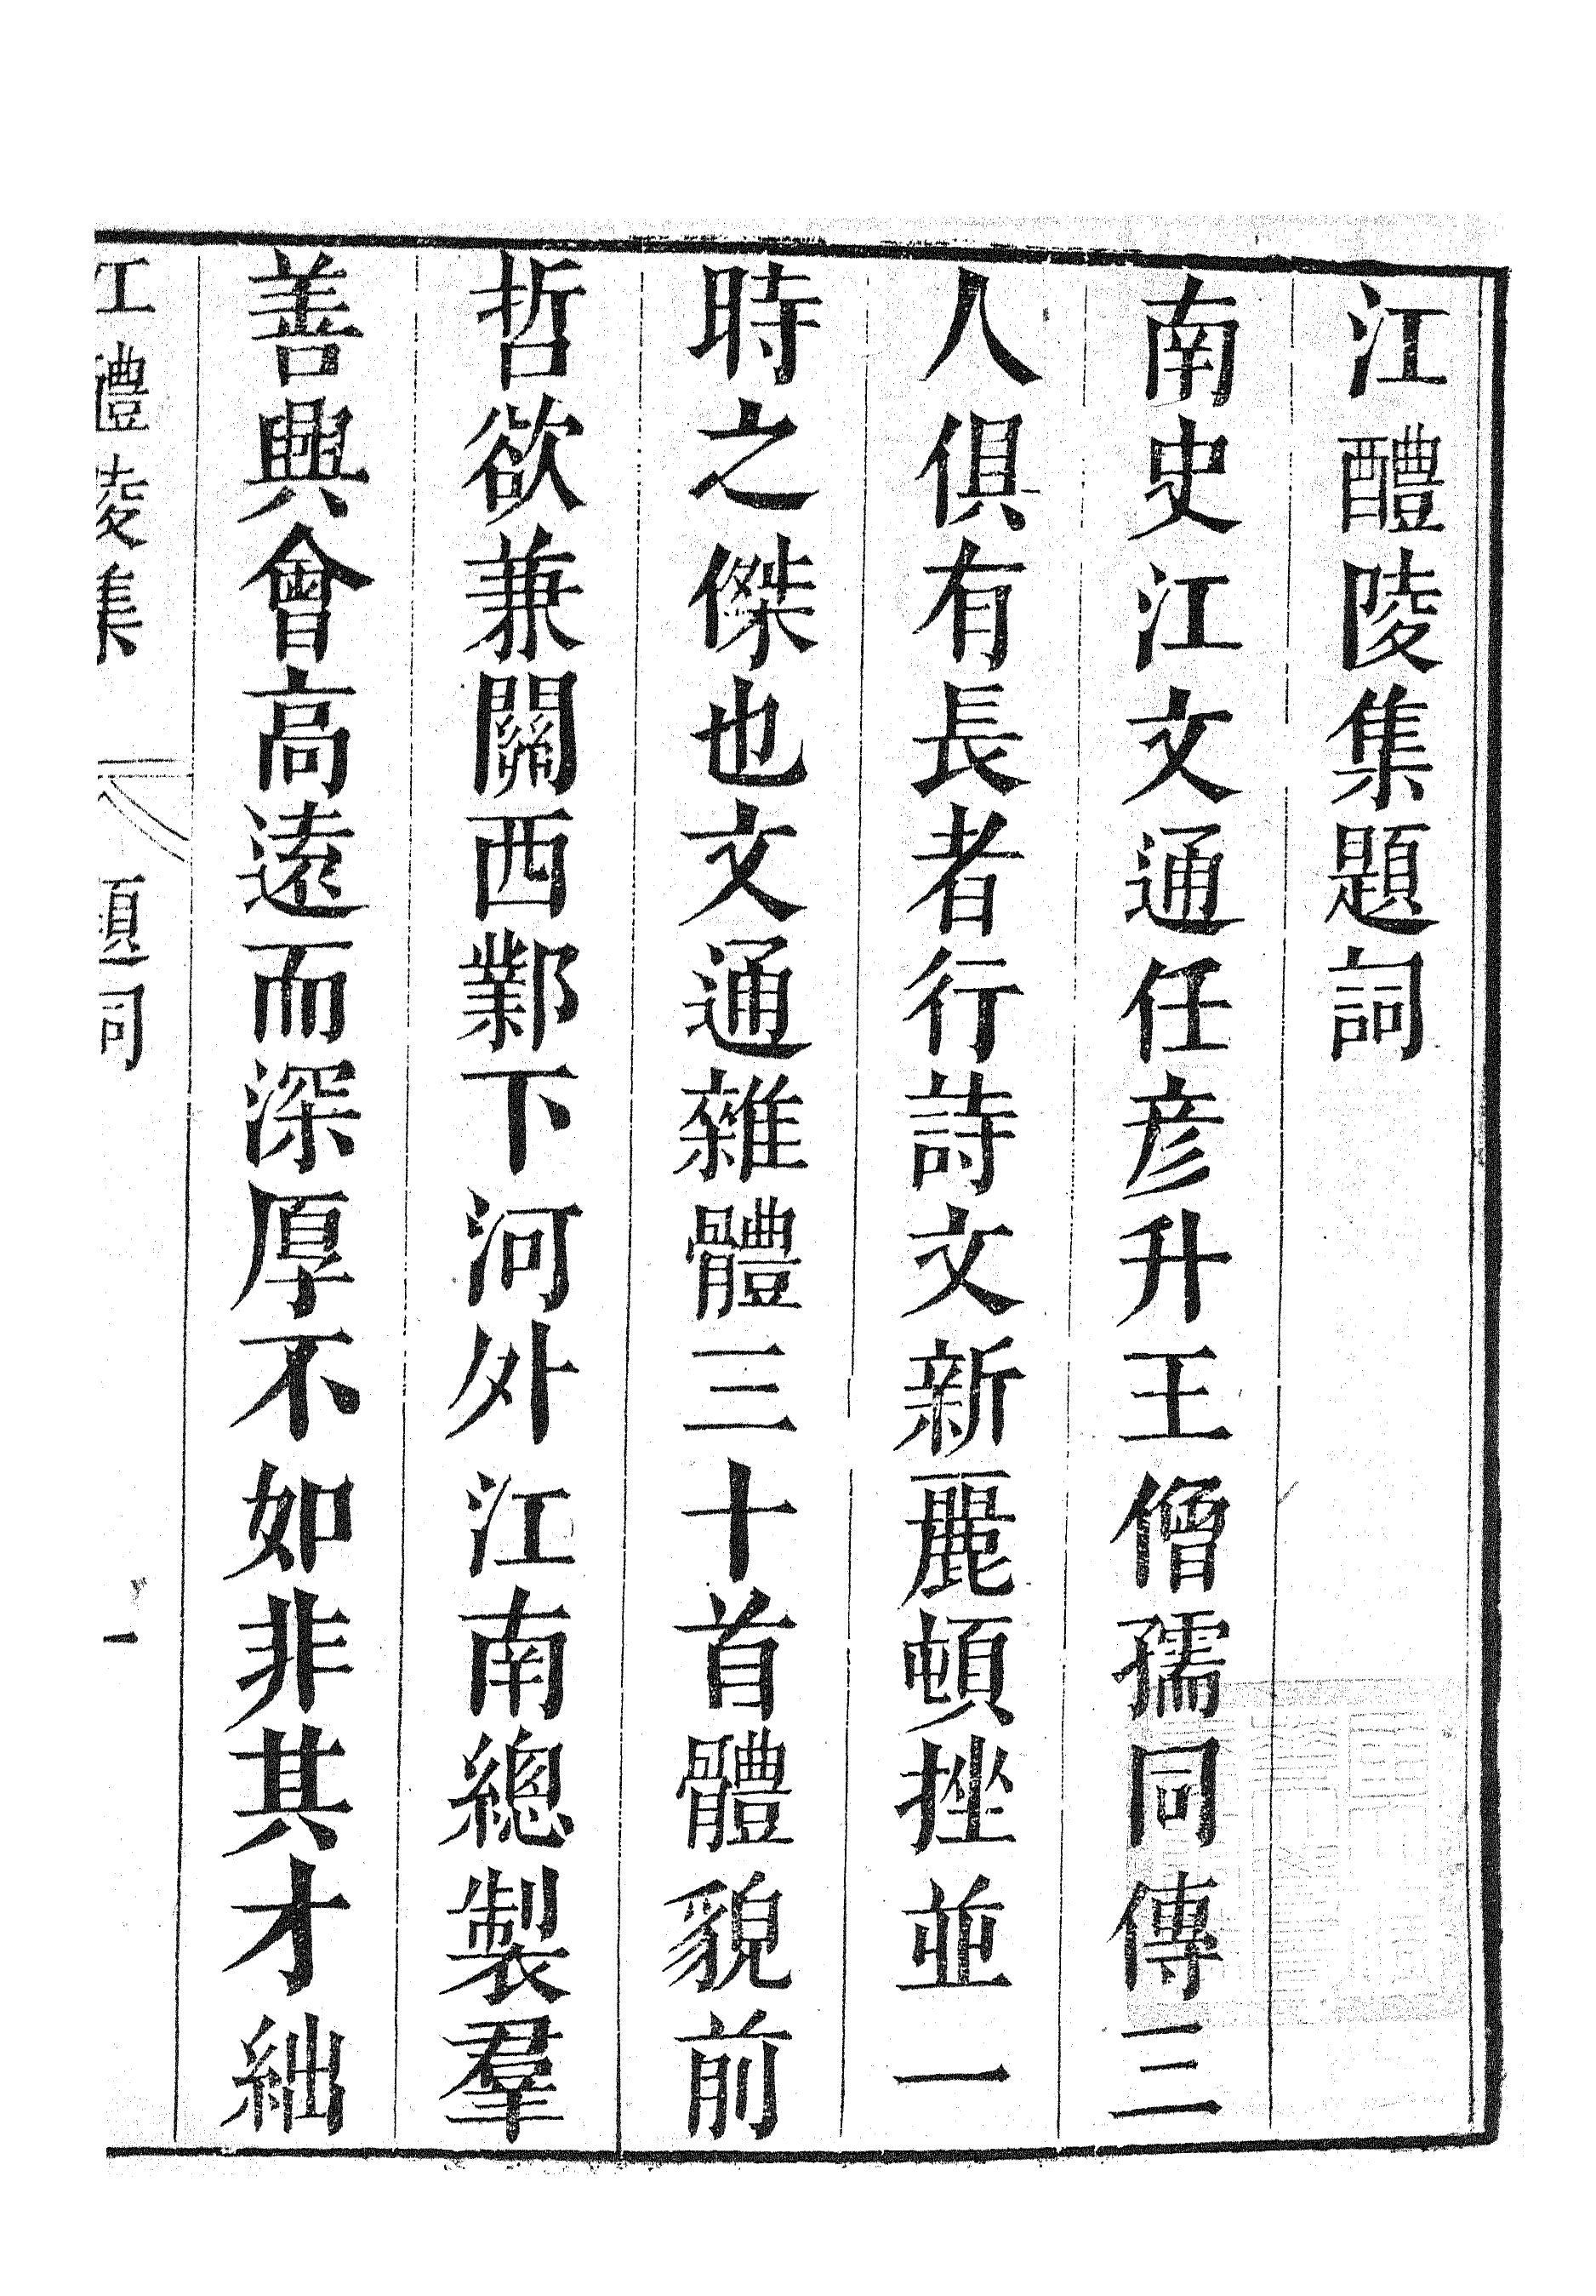 江醴陵集題詞
南史江文通任彥升王僧孺同傳三
人俱有長者行詩文新麗頓挫並一
時之傑也文通雜體三十首體貌前
哲欲兼關西鄴下河外江南總製羣
善興會高遠而深厚不如非其才絀
江醴陵集 題詞 一